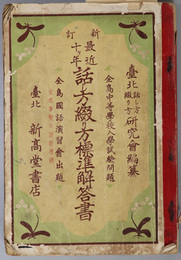 臺北 話し方 綴り方 研究會編纂
全島中等學校入學試驗問題
新訂
最近十年 話方綴り方標準解答書
全島國語演習會出題
臺北 新高堂書店